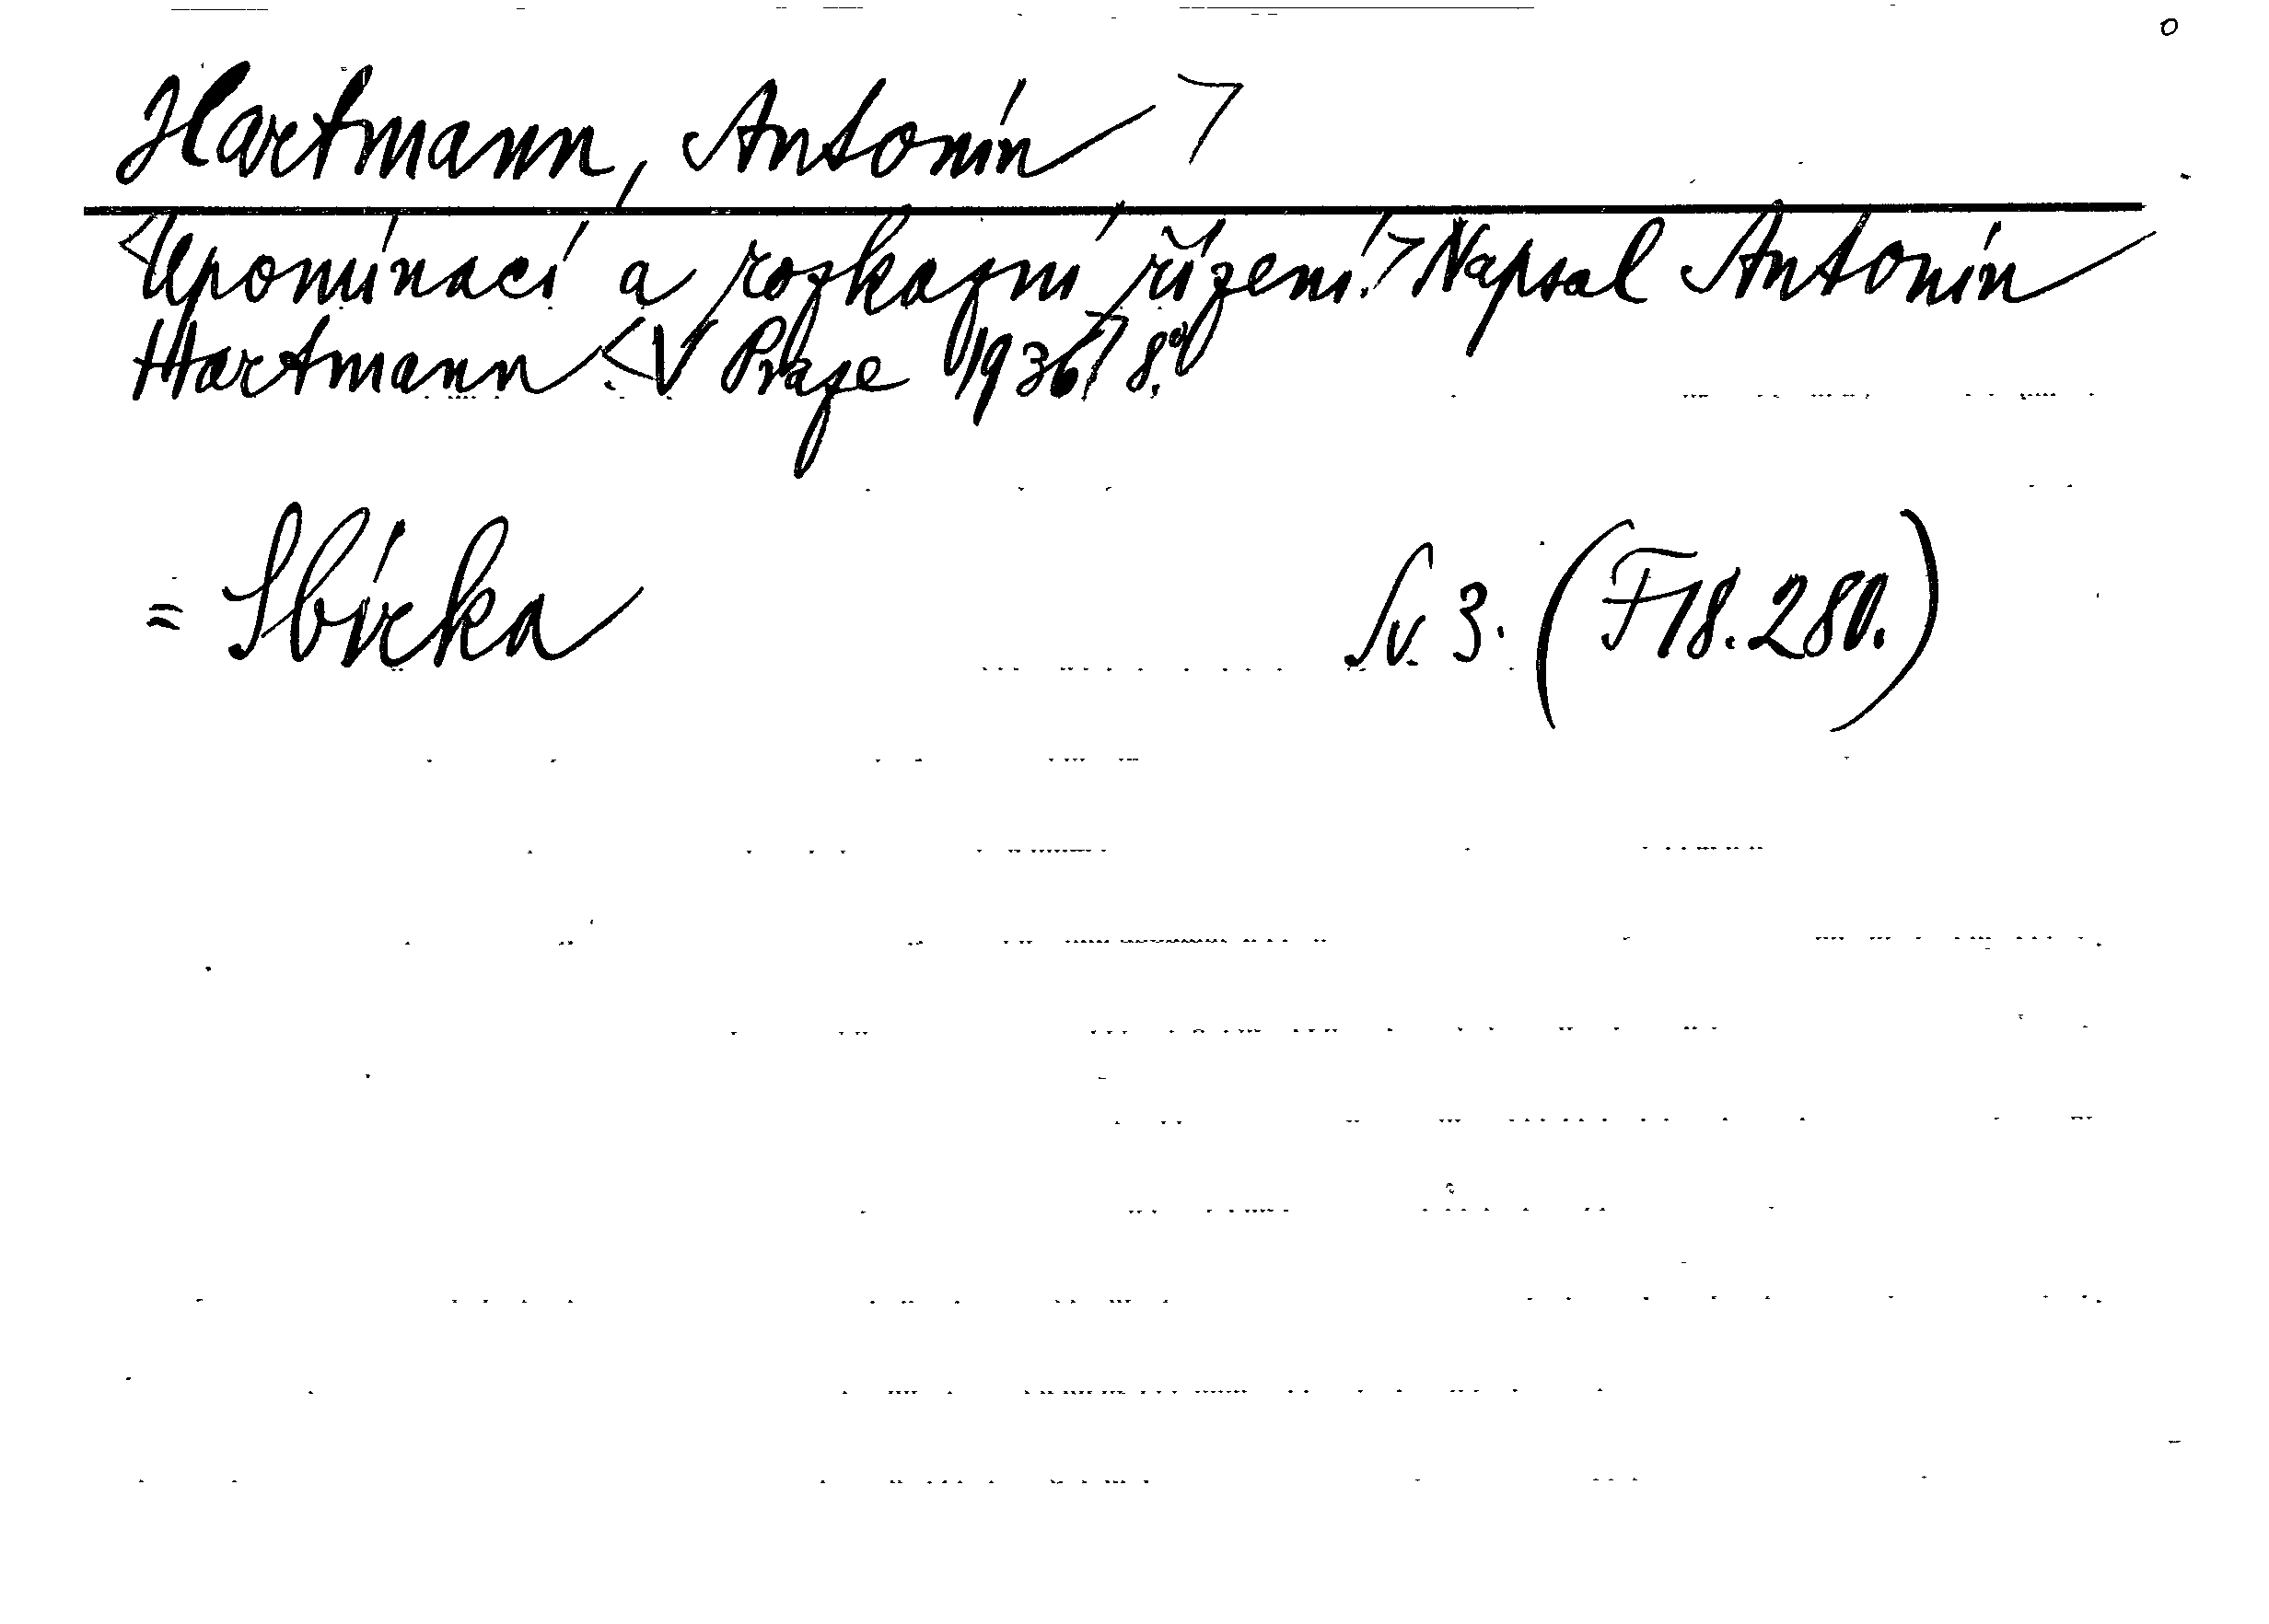 Hartmann, Antonín >
<Upomínací a rozkazní řízení.> Napsal Antonín
Hartmann. <V Praze 1936> 8.°
= Sbírka Sv. 3. (F 18.280.)